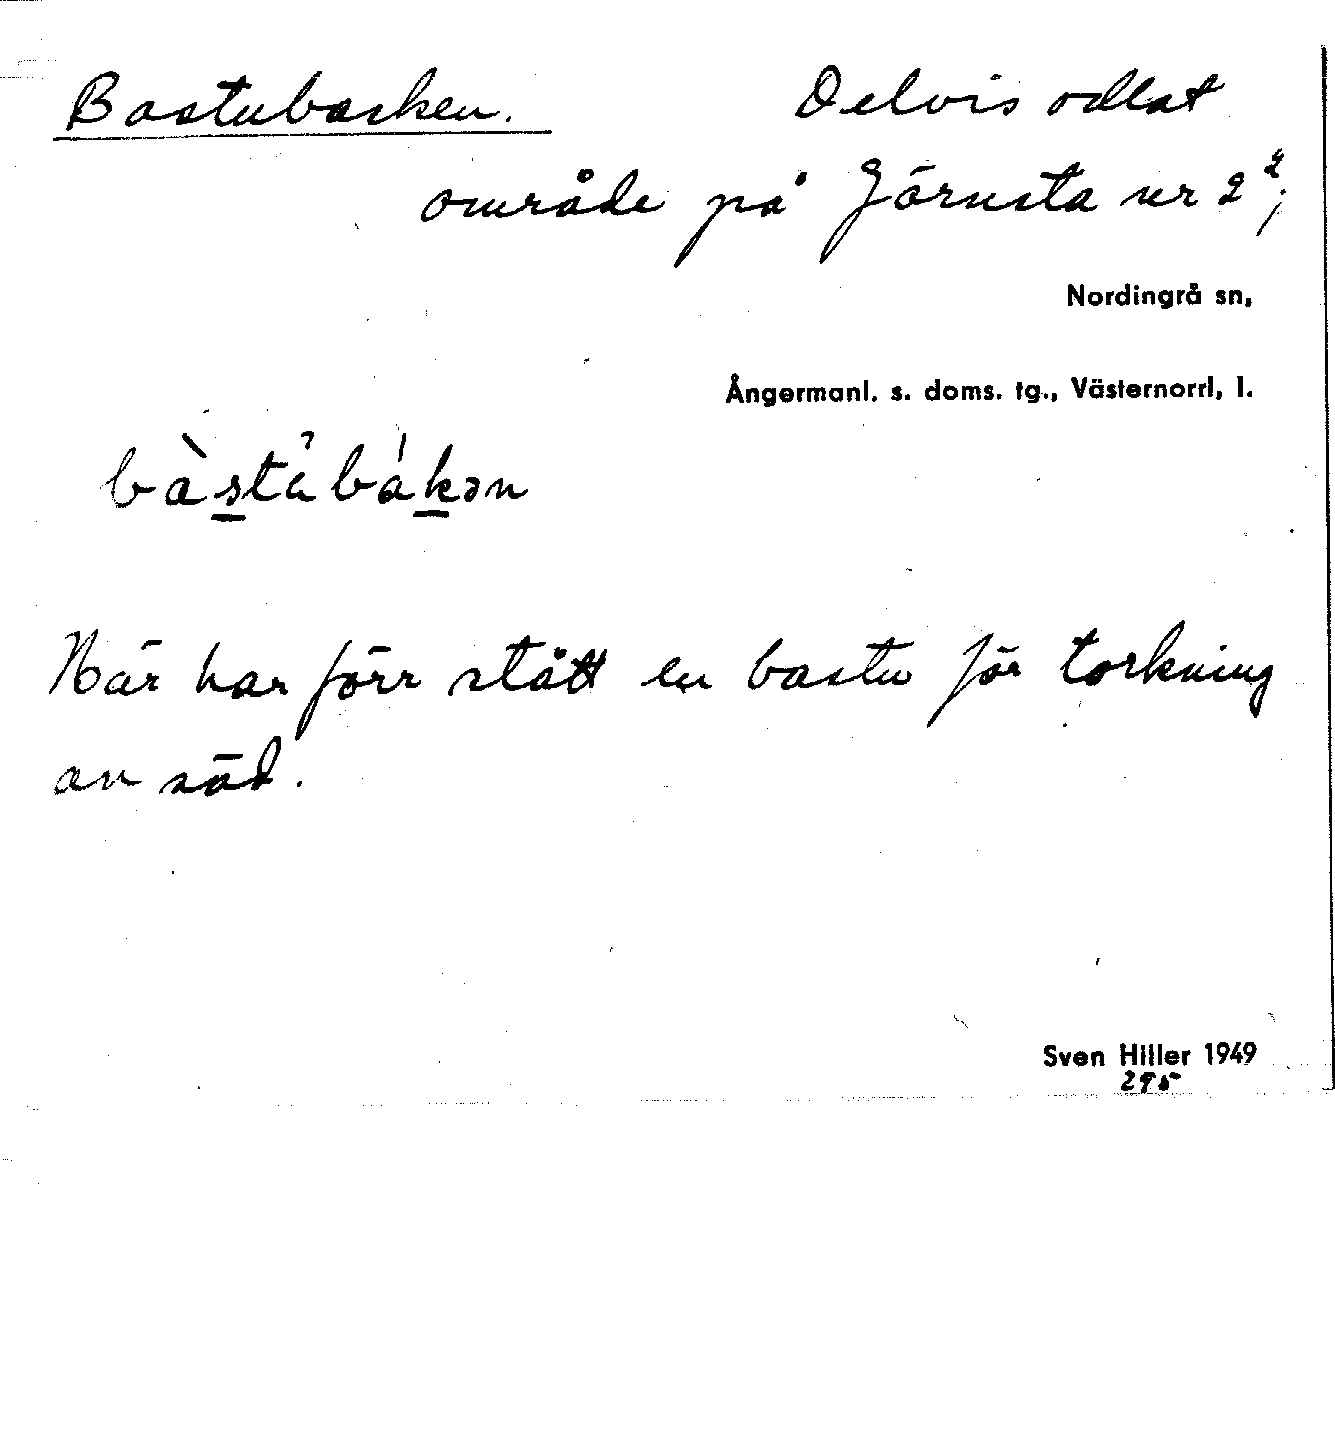 Bastubacken. Delvis odlat
område på Järnsta nr 2²;
Nordingrå sn,
Ångermanl. s. doms. tg., Västernorrl, l.
bàstȧbákən
Här har förr stått en bastu för torkning
av säd.
Sven Hiller 1949